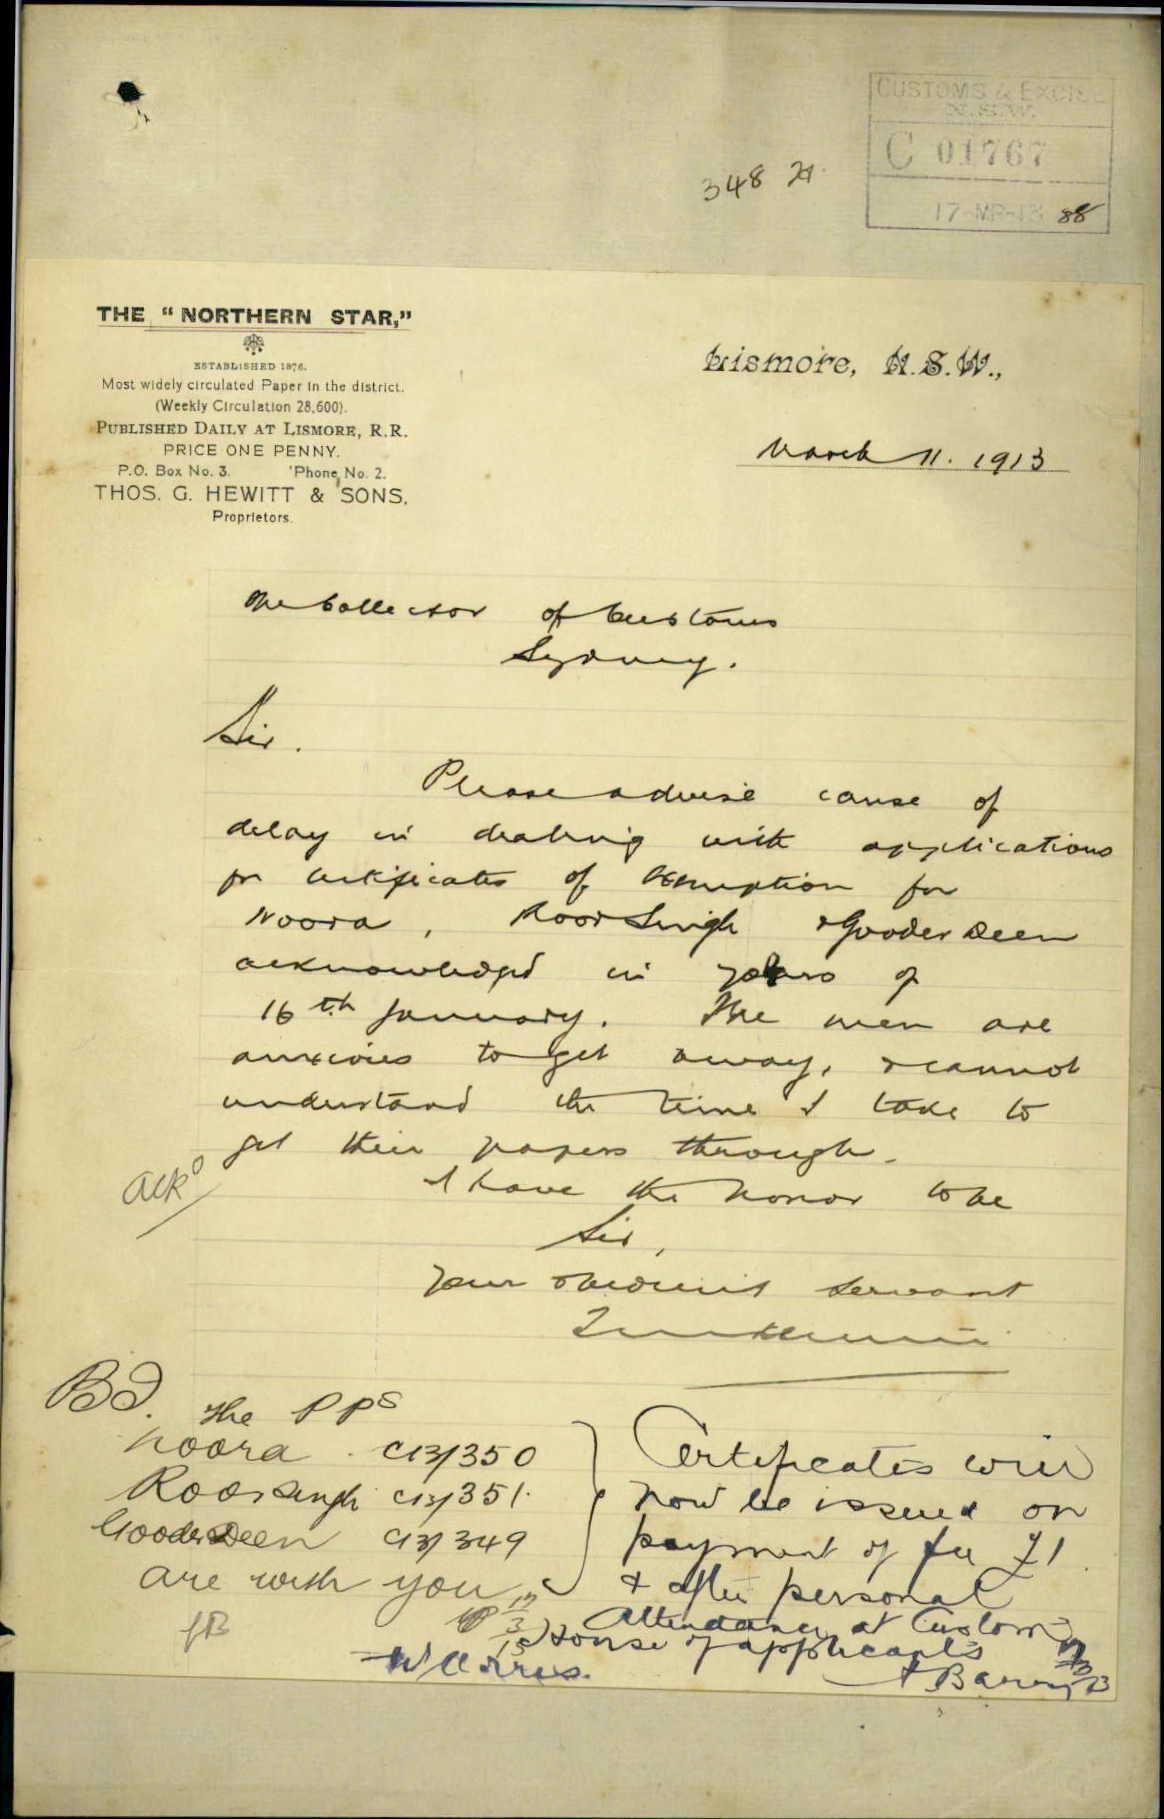 CUSTOMS & EXCISE
N.S.W.
C 01767
17-MR-13 88
348
THE "NORTHERN STAR,"
ESTABLISHED 1876.
Most widely circulated Paper in the district.
(Weekly Circulation 28,600).
PUBLISHED DAILY AT LISMORE, R.R.
PRICE ONE PENNY.
P.O. Box No. 3. 'Phone No. 2.
THOS. G. HEWITT & SONS,
Proprietors.
Lismore, N.S.W.,
March 11. 1913
The Collector of Customs
Sydney.
Sir.
Please advise cause of
delay in dealing with applications
for certificates of Exemption for
Noora, Roor Singh & Gooder Deen
acknowledged in yours of
16th January. The men are
anxious to get away, & cannot
understand the time I take to
get their papers through.
Ackd
I have the honor to be
Sir,
Your obedient servant
BD. The PPs
Noora C13/350
Roor Singh C13/351.
Gooder Deen C13/349
are with you
JB
17/3/13
Certificates will
now be issued on
payment of fee £1
& after personal
Attendance at Customs
House of applicants
A Barry 17/3/13